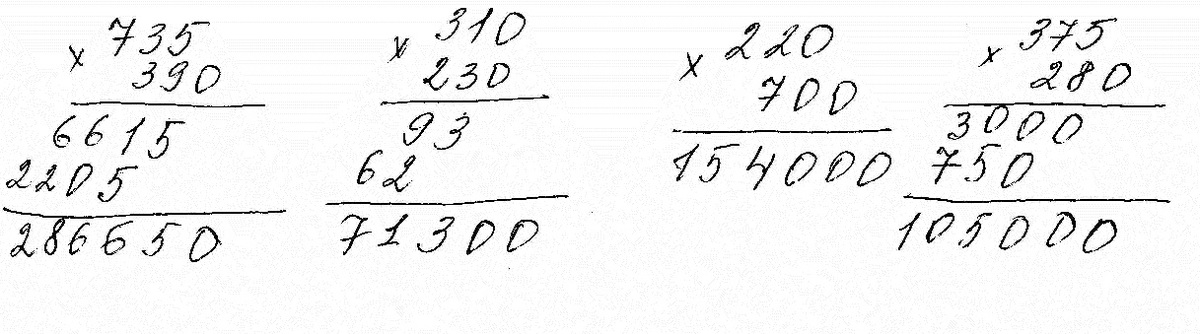 × 735
390
6615
2205
286650
× 310
230
93
62
71300
× 220
700
154000
× 375
280
3000
750
105000